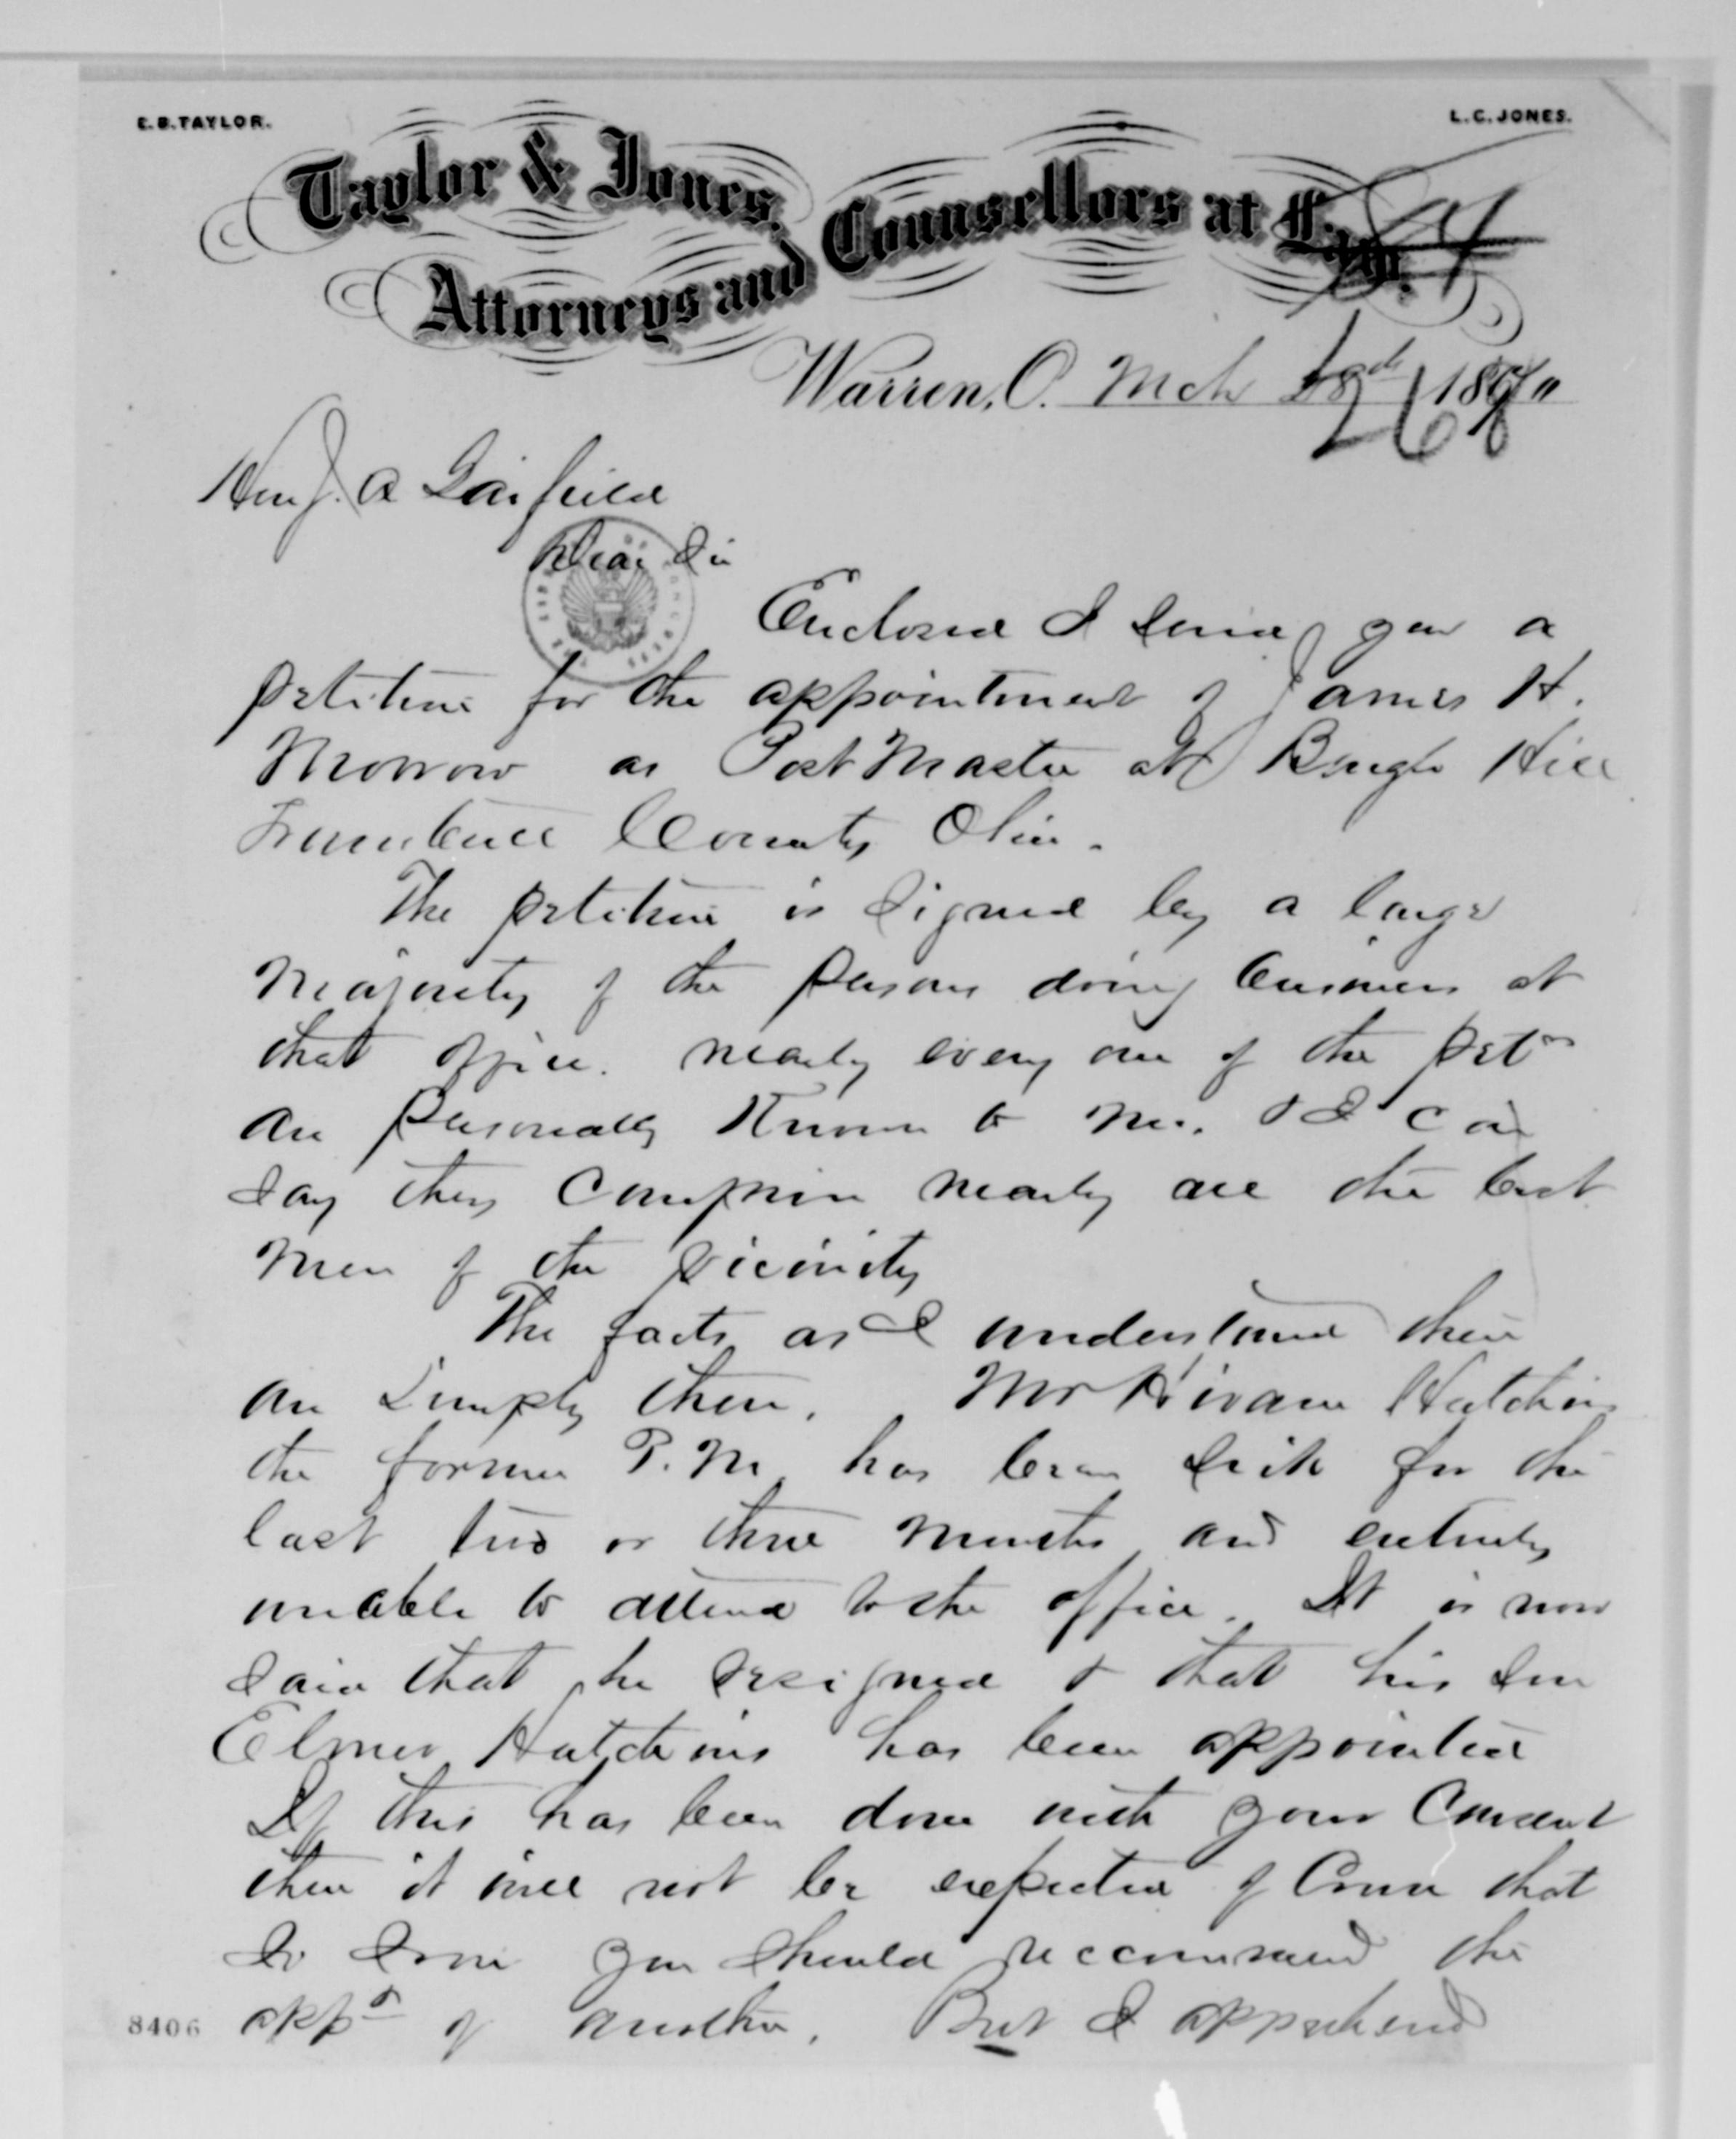 E.B. TAYLOR.
L.C. JONES.
Taylor & Jones,
Attorneys and Counsellors at Law.
Warren, O. Mch 1870
268
Hon J. A Garfield
Dear Sir
Enclosed I send you a
petition for the appointment of James H.
Morrow as Post Master at Brugh Hill
Trumbull County Ohio.
The petition is signed by a large
majority of the persons doing business at
that office. nearly every one of the petrs
are personally Known to me. & I can
say they comprise nearly all the best
men of the vicinity
The facts as I understand them
are simply these. Mr Hiram Hutchins
the former P.M. has been sick for the
last two or three months and entirely
unable to attend to the office. It is now
said that he resigned & that his son
Elmer Hutchins has been appointed
If this has been done with your consent
then it will not be expected of course that
so soon you should recommend the
appt of another. But I apprehend
8406